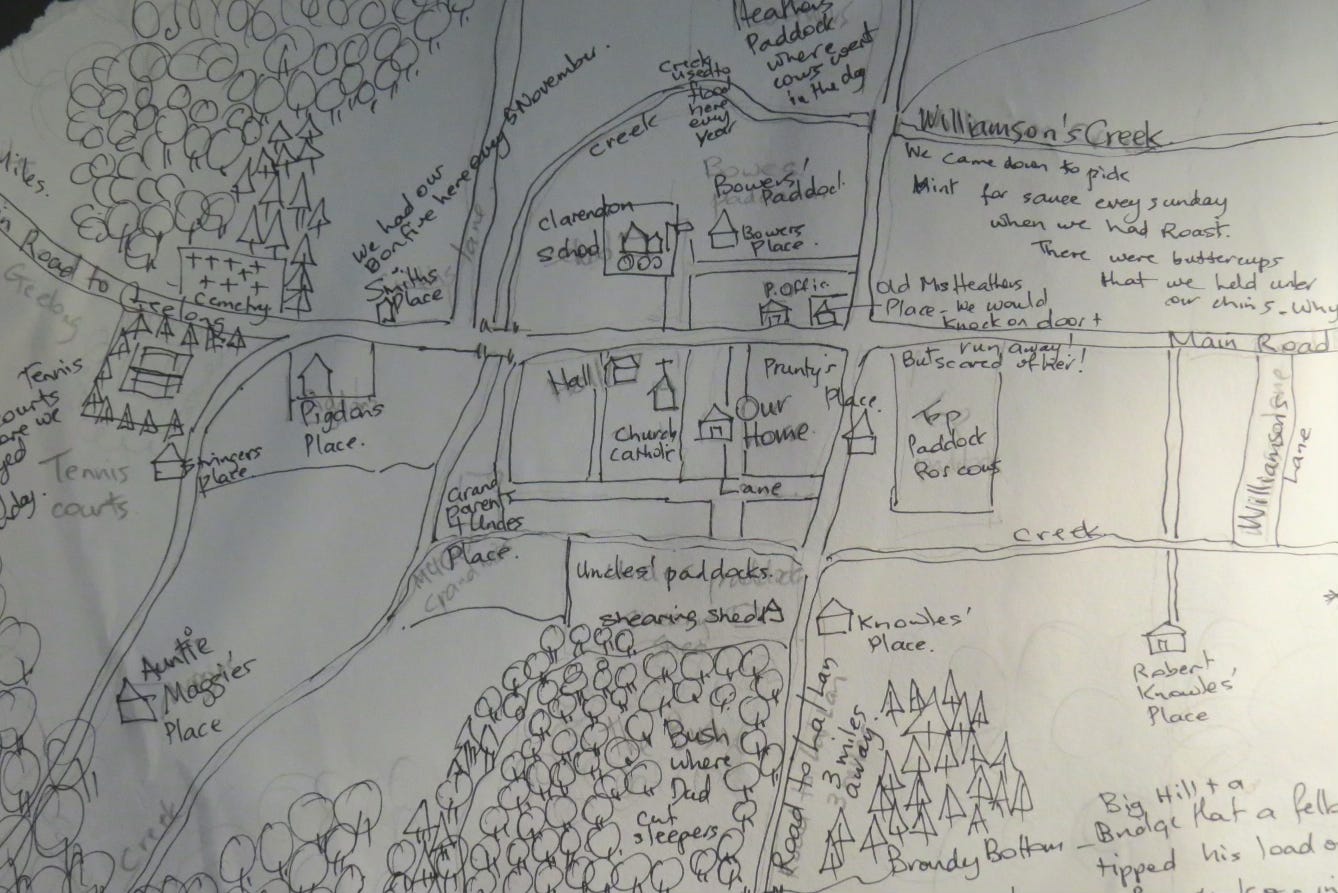 Heathers
Paddock
where
cows went
in the day
Creek
used to
flood
here
every
year
Creek
Williamson's Creek
We came down to pick
Mint for sauce evey sunday
when we had Roast.
There were buttercups
that we held unter
our chins - Why
Miles.
we had our
Bonfire here every 5 November.
lane
Bowers'
Bowers'
Paddock
Bowers
Place.
Clarendon
School
Smiths
Place
Cemetry
in Road to Geelong
Geelong
P. Office
Old Ms Heathers
Place - We would
Knock on door +
run away!
But scared of her!
Main Road
Tennis
courts
Tennis
courts
day.
Pigdons
Place.
Stringers
Place
Hall
Church
Catholic
Our
Home
Prunty's
Place.
Top
Paddock
For cows
Williamsons
Lane
Lane
Grand
Parents
+ Uncles
Place.
Creek
Uncles' paddocks.
shearing shed
Knowles'
Place.
Robert
Knowles'
Place
Auntie
Maggie's
Place
Creek
Bush
where
Dad
cut
sleepers
Road to Lal Lal
3 miles
away.
Brandy Bottom -
Big Hill + a
Bridge that a fella
tipped his load o